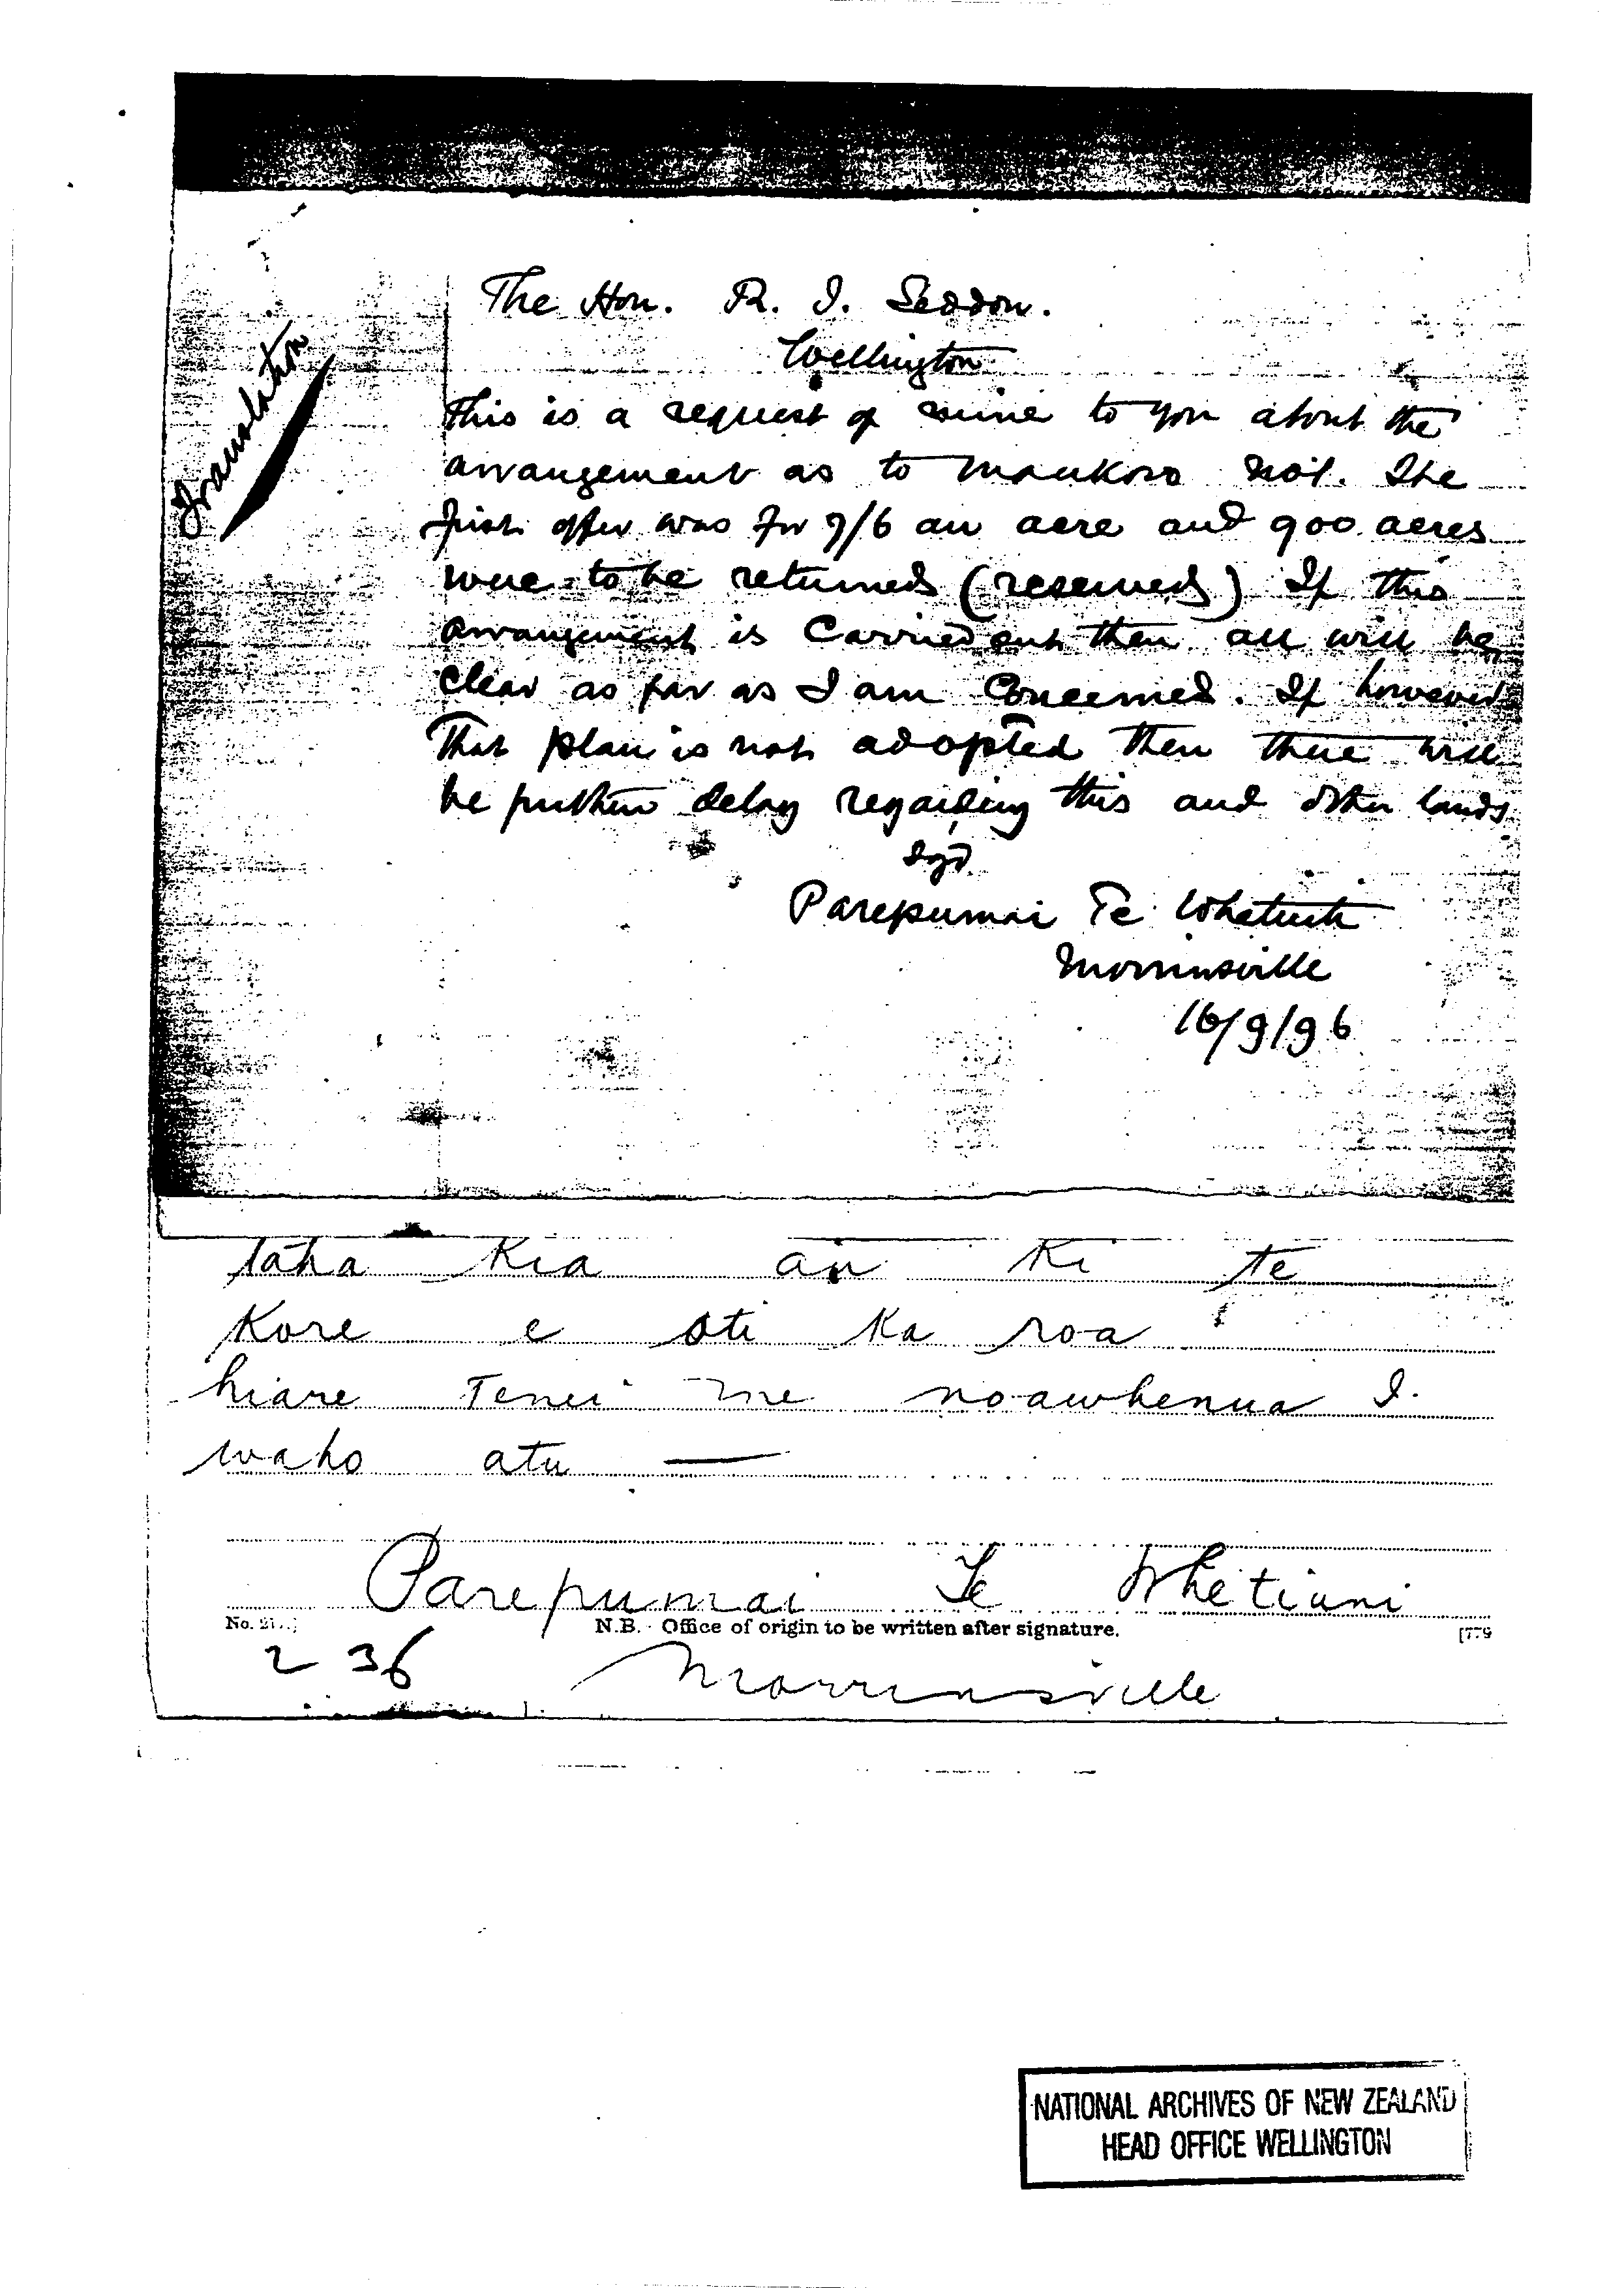 Translation
The Hon. R. J. Seddon.
Wellington
This is a request of mine to you about the
arrangement as to Maukoro No1. The
first offer was for 7/6 an acre and 900 acres
were to be returned (reserved) If this
arrangement is Carried out then all will be
clear as far as I am Concerned. If however
That plan is not adopted then there will
be further delay regarding this and other lands
Sgd.
Parepumai Te
Morrinsville
16/9/96
taha Kia au Ki te
Kore e oti Ka roa
hiare Tenei me noawhenua I.
waho atu —
Parepumai Te Whetiuni
N.B. - Office of origin to be written after signature.
2 36 Morrinsville
NATIONAL ARCHIVES OF NEW ZEALAND
HEAD OFFICE WELLINGTON